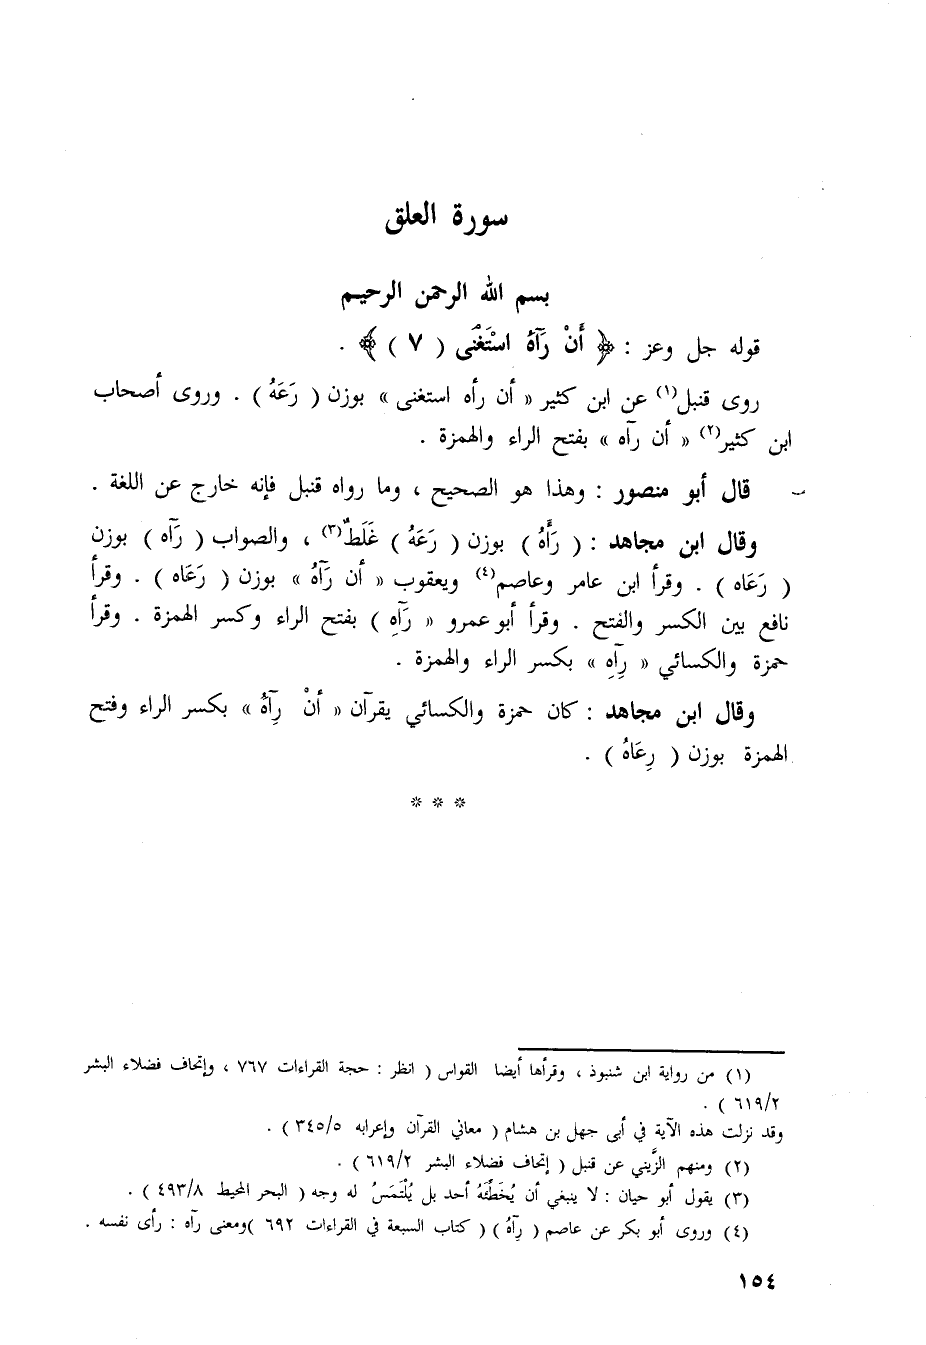 سورة العلق
بسم الله الرحمن الرحيم
قوله جل وعز : ﴿ أَنْ رَآهُ اسْتَغْنَى ( ٧ ) ﴾ .
روى قنبل(١) عن ابن كثير « أن رأه استغنى » بوزن ( رَعَهُ ) . وروى أصحاب
ابن كثير(٢) « أن رآه » بفتح الراء والهمزة .
قال أبو منصور : وهذا هو الصحيح ، وما رواه قنبل فإنه خارج عن اللغة .
وقال ابن مجاهد : ( رَأَهُ ) بوزن ( رَعَهُ ) غَلَطٌ(٣) ، والصواب ( رَآه ) بوزن
( رَعَاه ) . وقرأ ابن عامر وعاصم(٤) ويعقوب « أن رَآهُ » بوزن ( رَعَاه ) . وقرأ
نافع بين الكسر والفتح . وقرأ أبو عمرو « رَآهِ ) بفتح الراء وكسر الهمزة . وقرأ
حمزة والكسائي « رِآهِ » بكسر الراء والهمزة .
وقال ابن مجاهد : كان حمزة والكسائي يقرآن « أنْ رِآهُ » بكسر الراء وفتح
الهمزة بوزن ( رِعَاهُ ) .
* * *
(١) من رواية ابن شنبوذ ، وقرأها أيضا القواس ( انظر : حجة القراءات ٧٦٧ ، وإتحاف فضلاء البشر
٦١٩/٢ ) .
وقد نزلت هذه الآية في أبى جهل بن هشام ( معاني القرآن وإعرابه ٣٤٥/٥ ) .
(٢) ومنهم الزَّيني عن قنبل ( إتحاف فضلاء البشر ٦١٩/٢ ) .
(٣) يقول أبو حيان : لا ينبغي أن يُخَطِّئَهُ أحد بل يُلْتَمَسُ له وجه ( البحر المحيط ٤٩٣/٨ ) .
(٤) وروى أبو بكر عن عاصم ( رِآهُ ) ( كتاب السبعة في القراءات ٦٩٢ )ومعنى رآه : رأى نفسه .
١٥٤